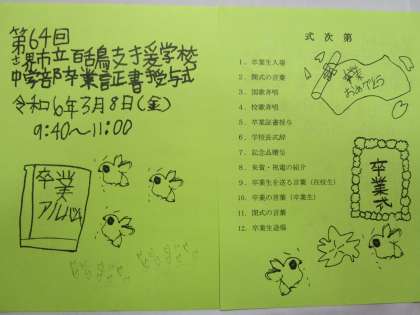 第64回
堺市立百舌鳥支援学校
中学部卒業証書授与式
令和6年3月8日(金)
9:40～11:00
卒業
アルバム
式次第
1. 卒業生入場
2. 開式の言葉
3. 国歌斉唱
4. 校歌斉唱
5. 卒業証書授与
6. 学校長式辞
7. 記念品贈呈
8. 来賓・祝電の紹介
9. 卒業生を送る言葉（在校生）
10. 卒業の言葉（卒業生）
11. 閉式の言葉
12. 卒業生退場
卒業
おめでとう
卒業式